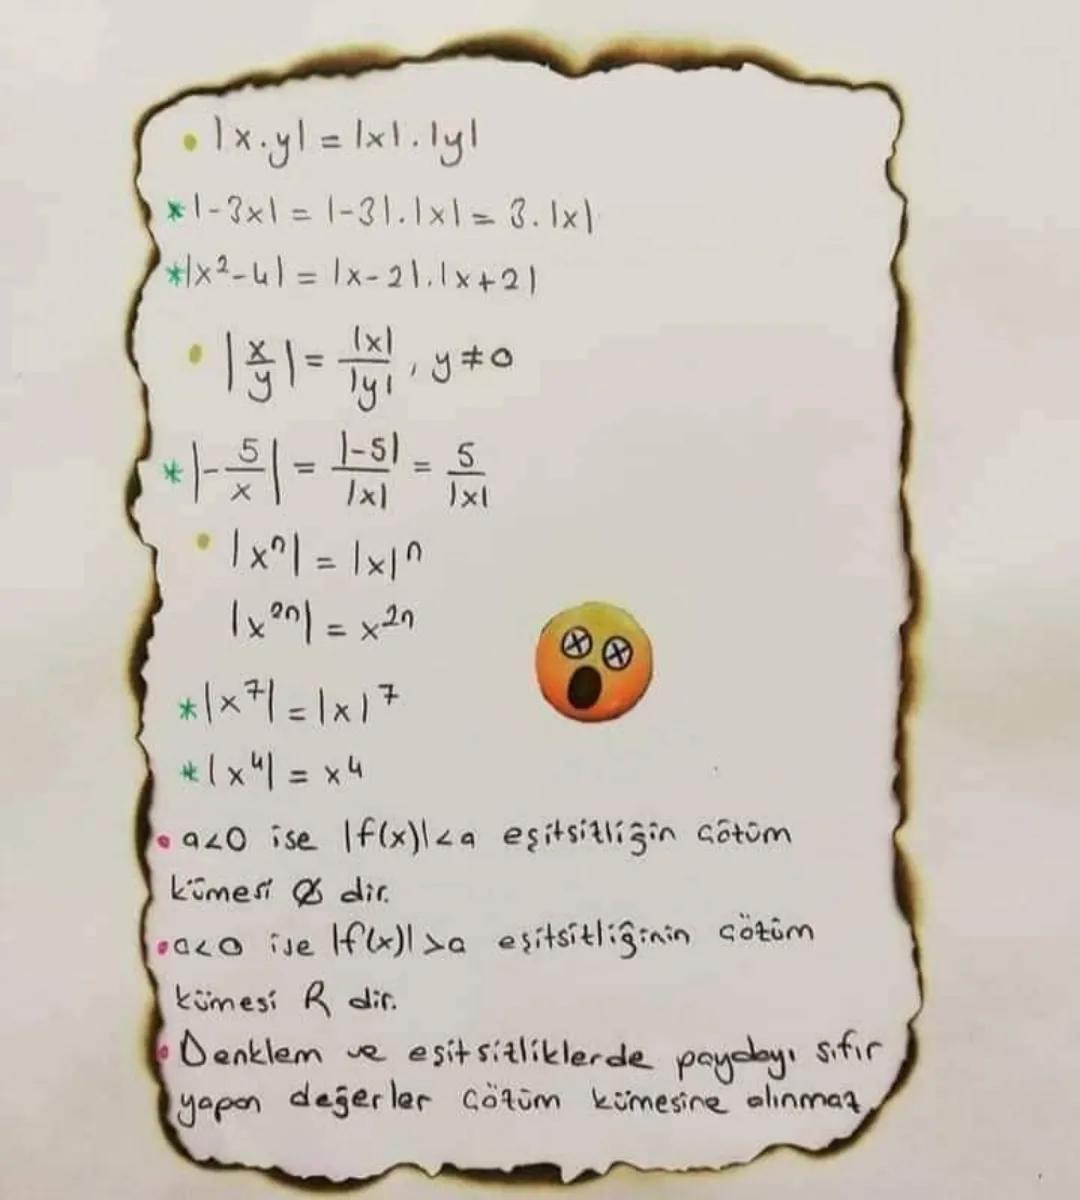 • |x.y| = |x|.|y|
* |-3x| = |-3|.|x| = 3.|x|
* |x²-4| = |x-2|.|x+2|
• |x/y| = |x|/|y| , y≠0
* |-5/x| = |-5|/|x| = 5/|x|
• |xⁿ| = |x|ⁿ
|x²ⁿ| = x²ⁿ
* |x⁷| = |x|⁷
* |x⁴| = x⁴
• a<0 ise |f(x)|<a eşitsizliğin çözüm
kümesi Ø dir.
• a<0 ise |f(x)|>a eşitsizliğinin çözüm
kümesi R dir.
• Denklem ve eşitsizliklerde paydayı sıfır
yapan değerler çözüm kümesine alınmaz.